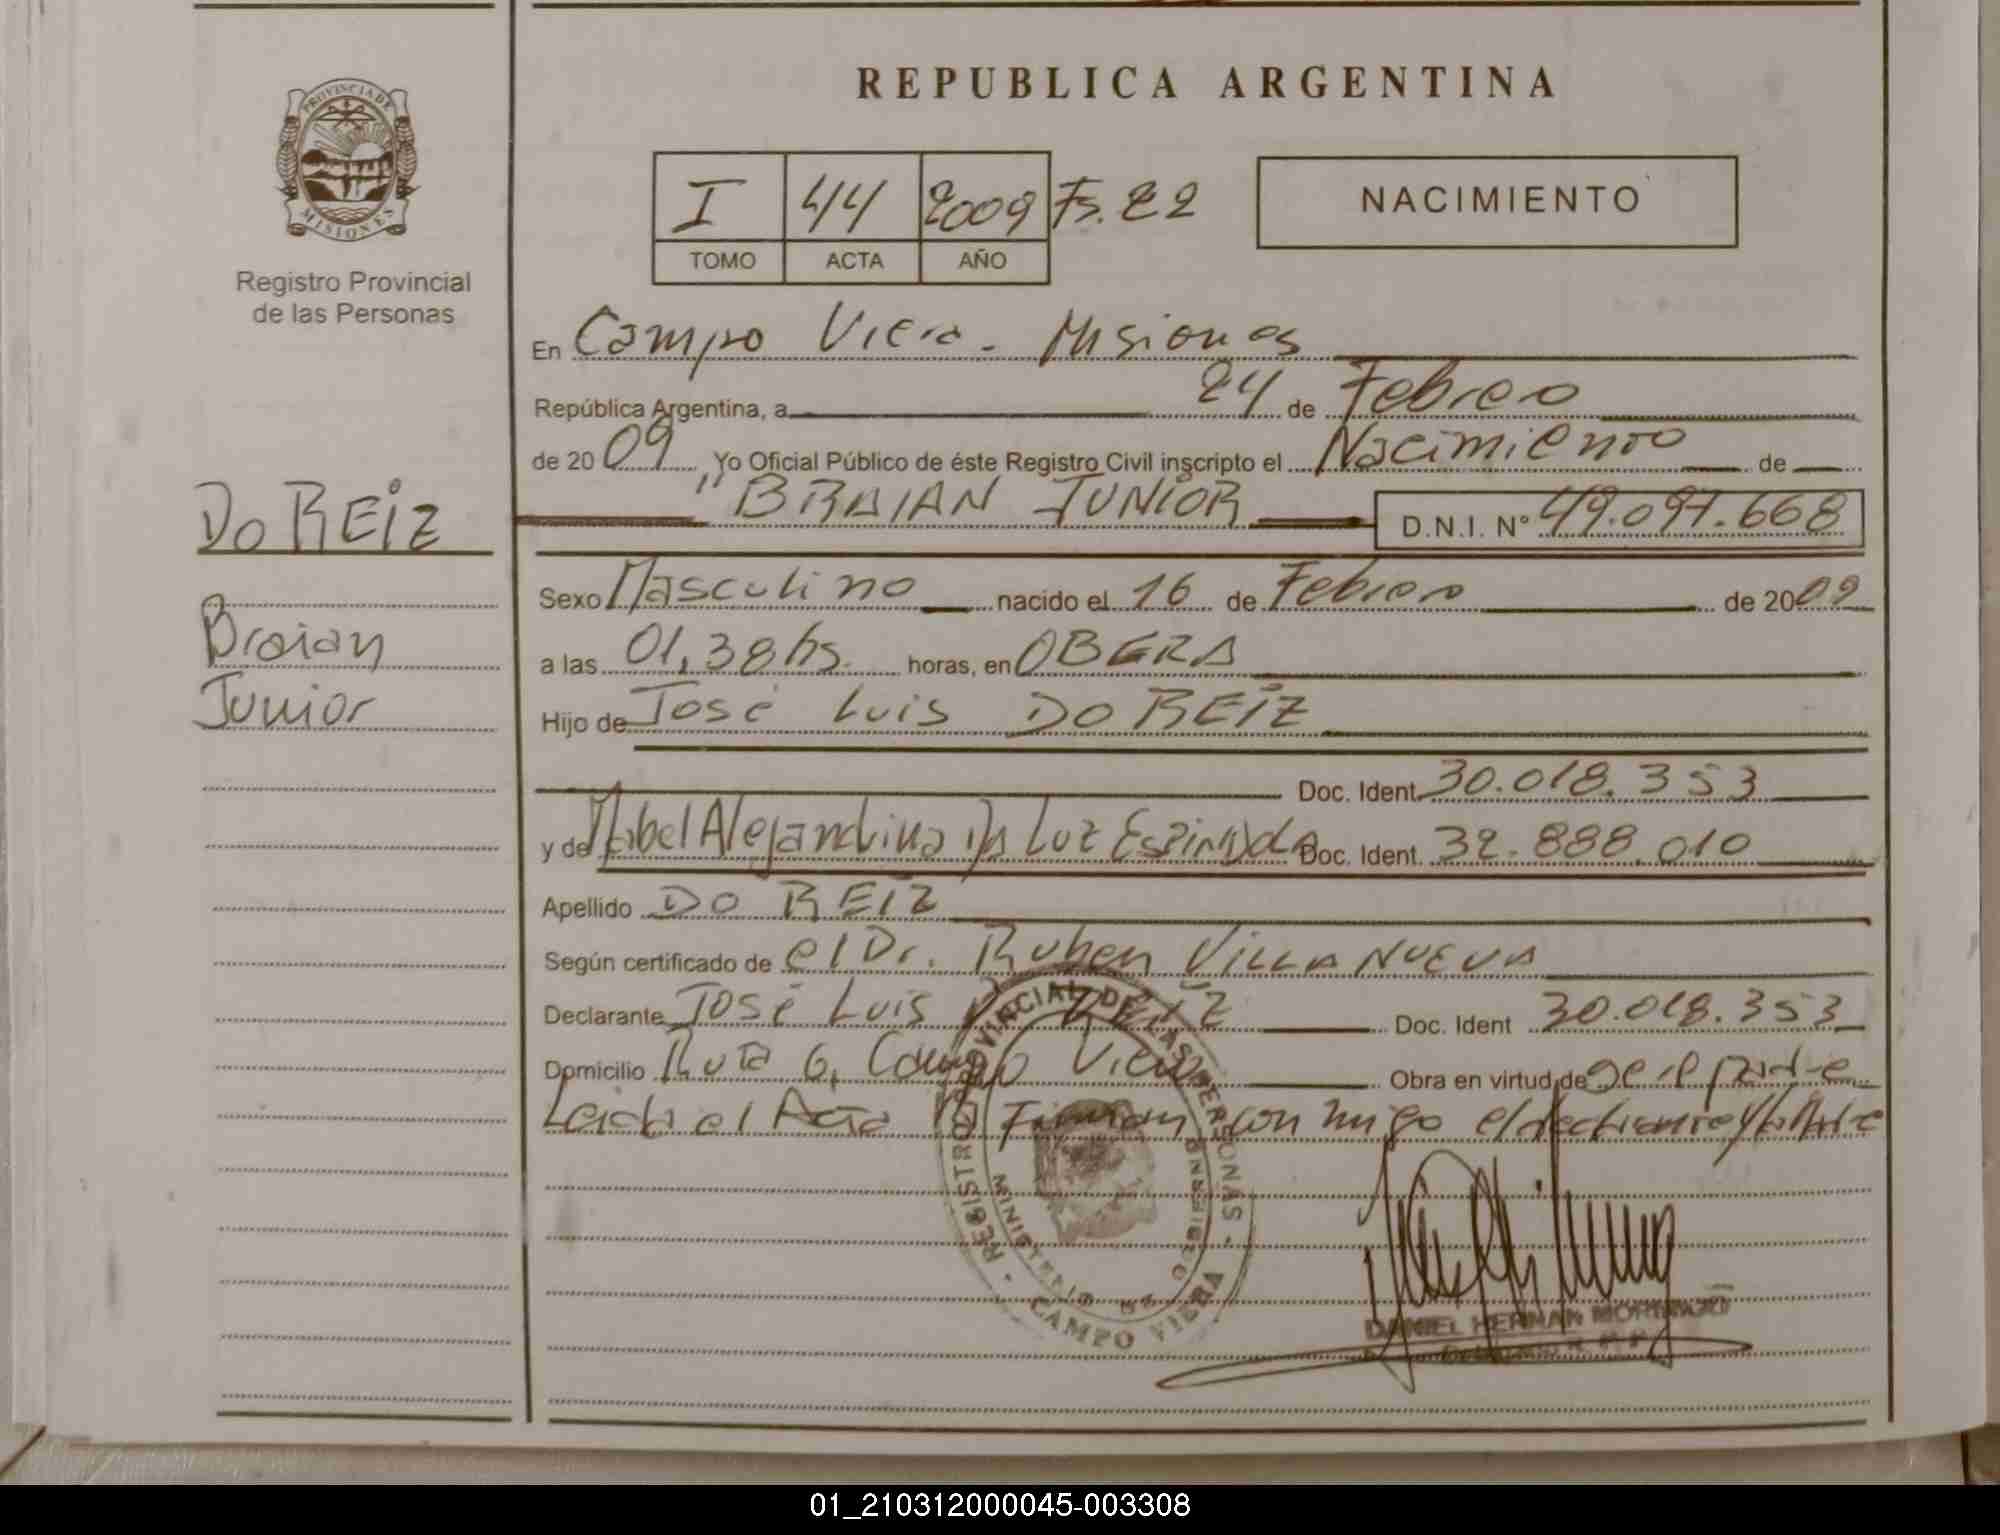 REPUBLICA ARGENTINA
PROVINCIA DE
MISIONES
Registro Provincial
de las Personas
I 44 2009 Fs. 22
TOMO ACTA AÑO
NACIMIENTO
En Campo Viera - Misiones
República Argentina, a 24 de Febrero
de 2009 Yo Oficial Público de éste Registro Civil inscripto el Nacimiento de
"BRAIAN JUNIOR D.N.I. Nº 49.097.668
DO REIZ
Braian
Junior
Sexo Masculino nacido el 16 de Febrero de 2009
a las 01,38 hs. horas, en OBERA
Hijo de José Luis DO REIZ
Doc. Ident. 30.018.353
y de Mabel Alejandrina Da Luz Espindola Doc. Ident. 32.888.010
Apellido DO REIZ
Según certificado de el Dr. Ruben VILLANUEVA
Declarante José Luis DO REIZ Doc. Ident 30.018.353
Domicilio Ruta 6, Campo Viera Obra en virtud de ser el padre
Leida el Acta Firman conmigo el declarante y la Madre
REGISTRO PROVINCIAL DE LAS PERSONAS - CAMPO VIERA -
MINISTERIO DE GOBIERNO
DANIEL HERNAN
01_210312000045-003308